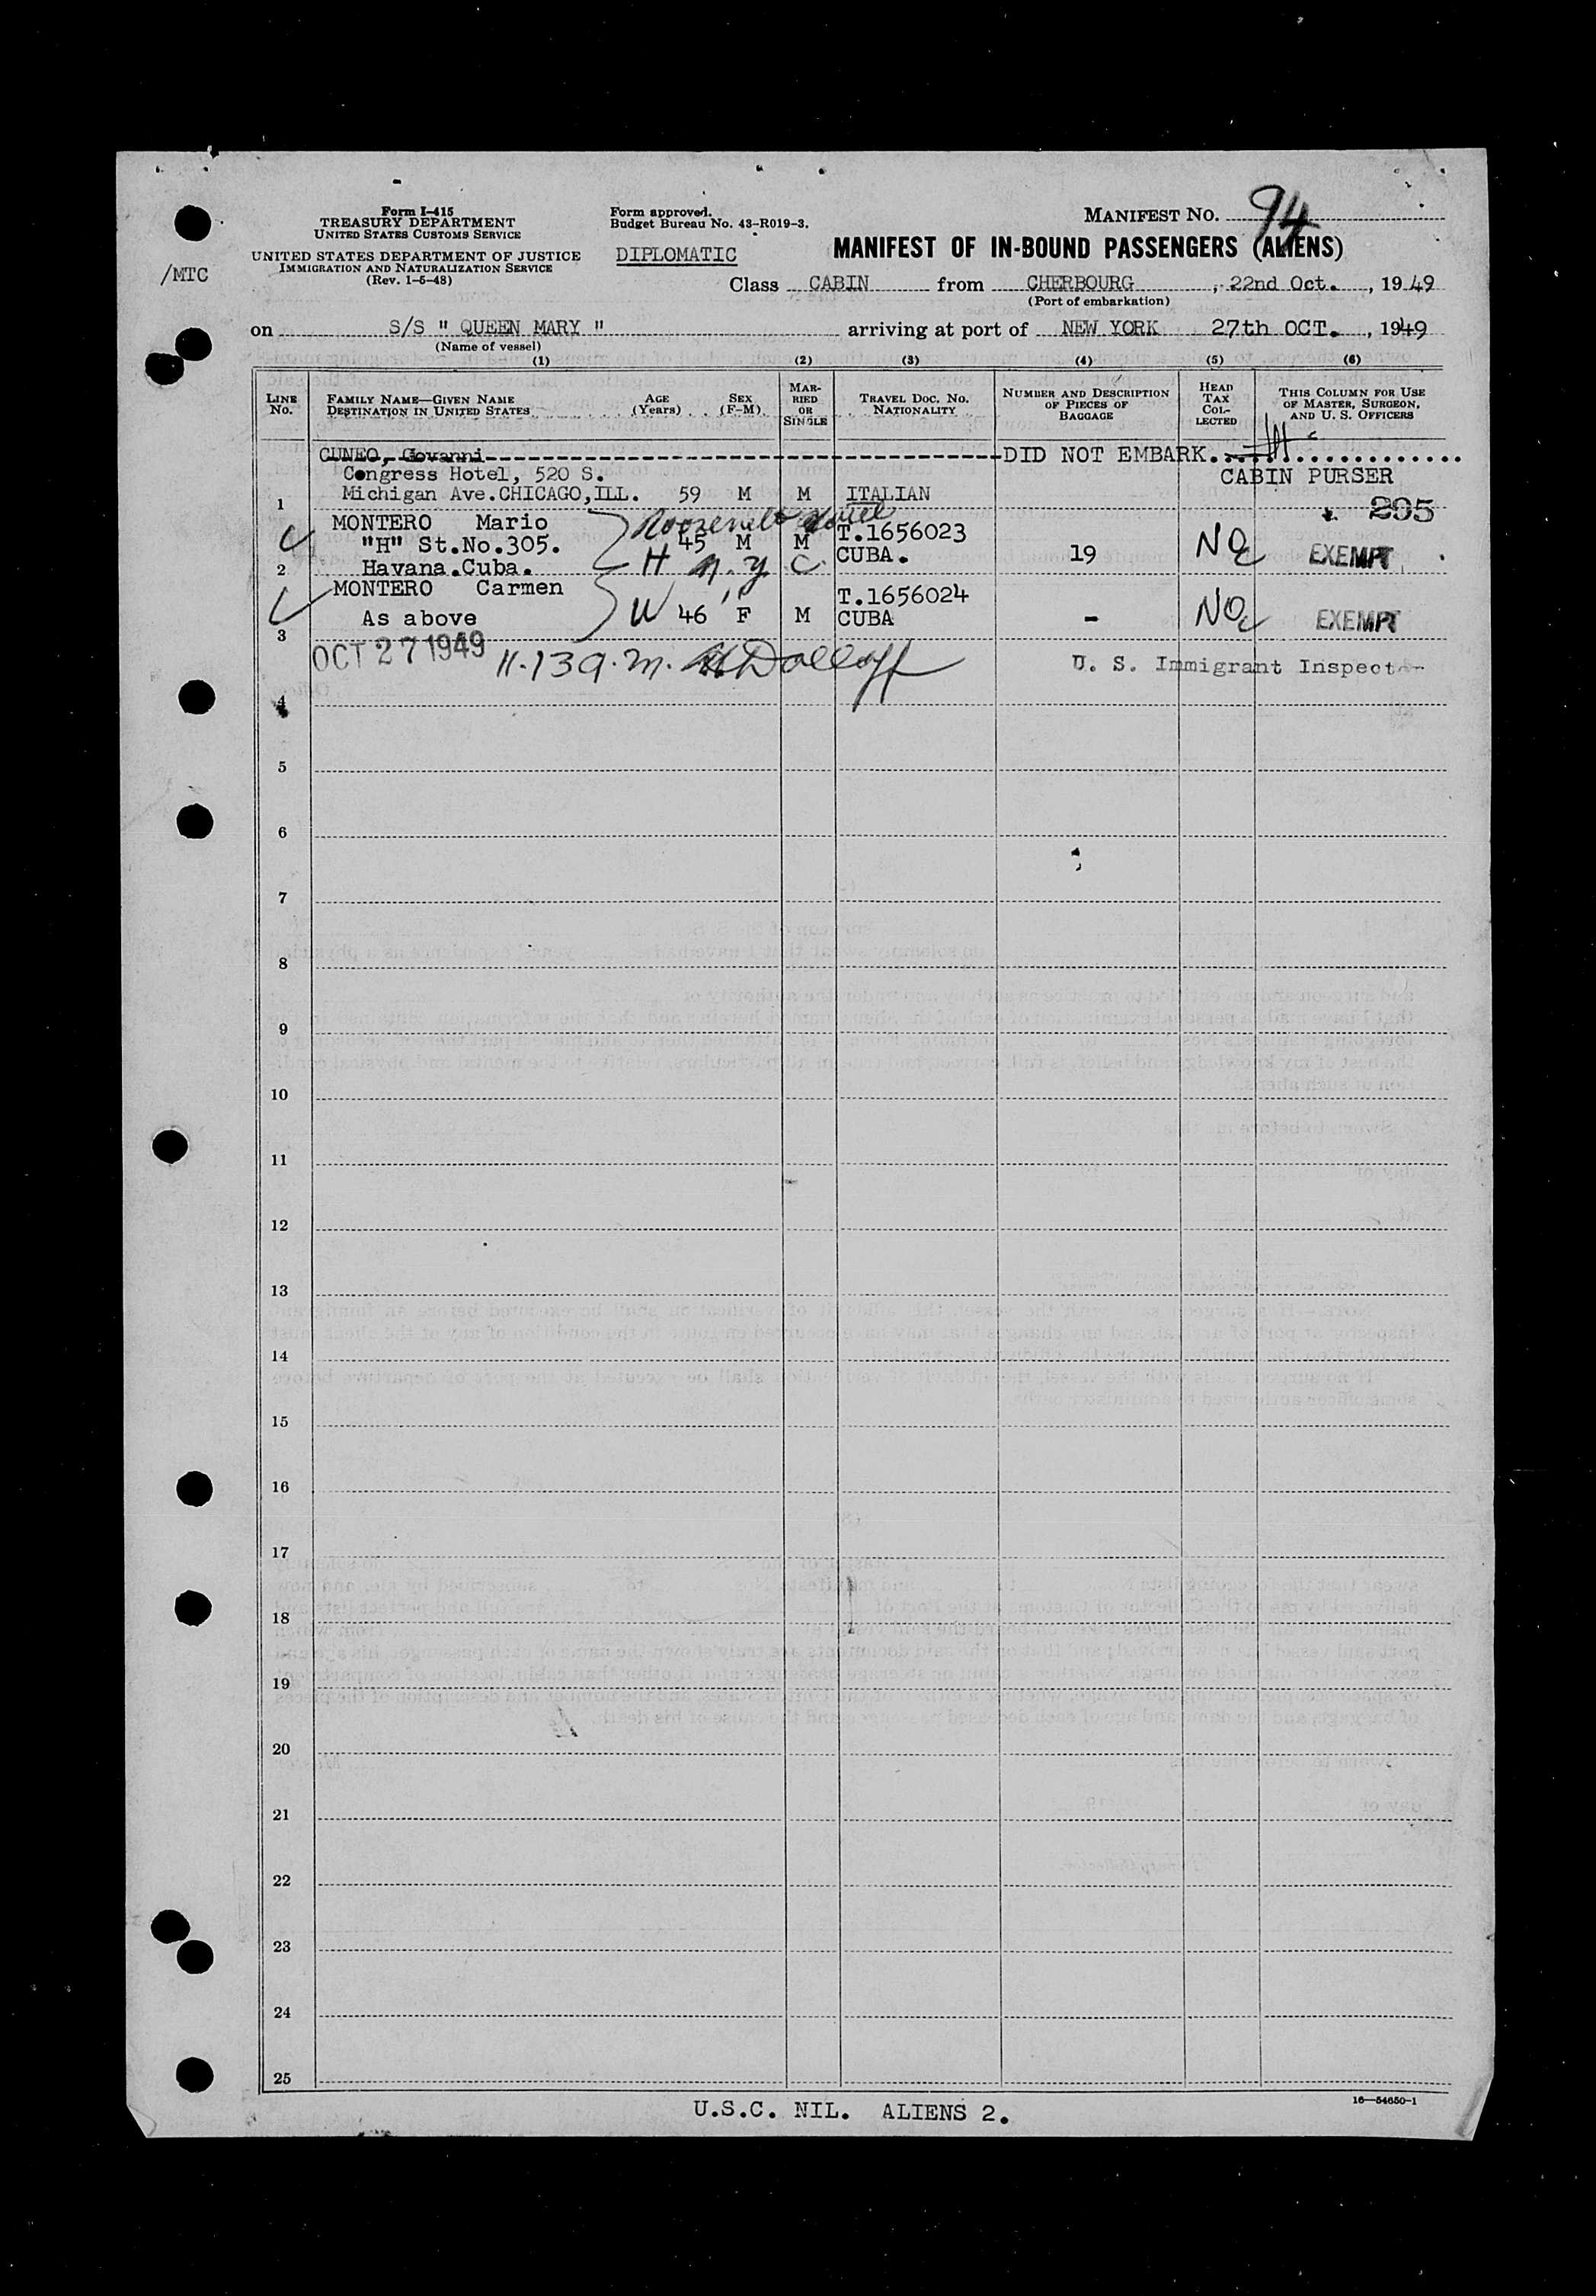 Form I-415
TREASURY DEPARTMENT
UNITED STATES CUSTOMS SERVICE
UNITED STATES DEPARTMENT OF JUSTICE
IMMIGRATION AND NATURALIZATION SERVICE
(Rev. 1-5-48)
/MTC
Form approved.
Budget Bureau No. 43-R019-3.
DIPLOMATIC
MANIFEST NO. 94
MANIFEST OF IN-BOUND PASSENGERS (ALIENS)
Class CABIN from CHERBOURG, 22nd Oct., 1949
(Port of embarkation)
on S/S " QUEEN MARY " arriving at port of NEW YORK 27th OCT., 1949
(Name of vessel)
(1) (2) (3) (4) (5) (6)
LINE No.
FAMILY NAME—GIVEN NAME
DESTINATION IN UNITED STATES
AGE (Years)
SEX (F-M)
MARRIED OR SINGLE
TRAVEL DOC. NO. NATIONALITY
NUMBER AND DESCRIPTION OF PIECES OF BAGGAGE
HEAD TAX COLLECTED
THIS COLUMN FOR USE OF MASTER, SURGEON, AND U. S. OFFICERS
CUNEO, Govanni------------------------------DID NOT EMBARK..................
Congress Hotel, 520 S. CABIN PURSER
1 Michigan Ave.CHICAGO,ILL. 59 M M ITALIAN
295
MONTERO Mario Roosevelt Hotel
"H" St.No.305. 45 M M T.1656023
2 Havana.Cuba. H N.Y. C CUBA. 19 NO EXEMPT
MONTERO Carmen T.1656024
3 As above W 46 F M CUBA - NO EXEMPT
OCT 27 1949 11.13 a.m. U. S. Immigrant Inspector
4
5
6
7
8
9
10
11
12
13
14
15
16
17
18
19
20
21
22
23
24
25
U.S.C. NIL. ALIENS 2.
16—54650-1